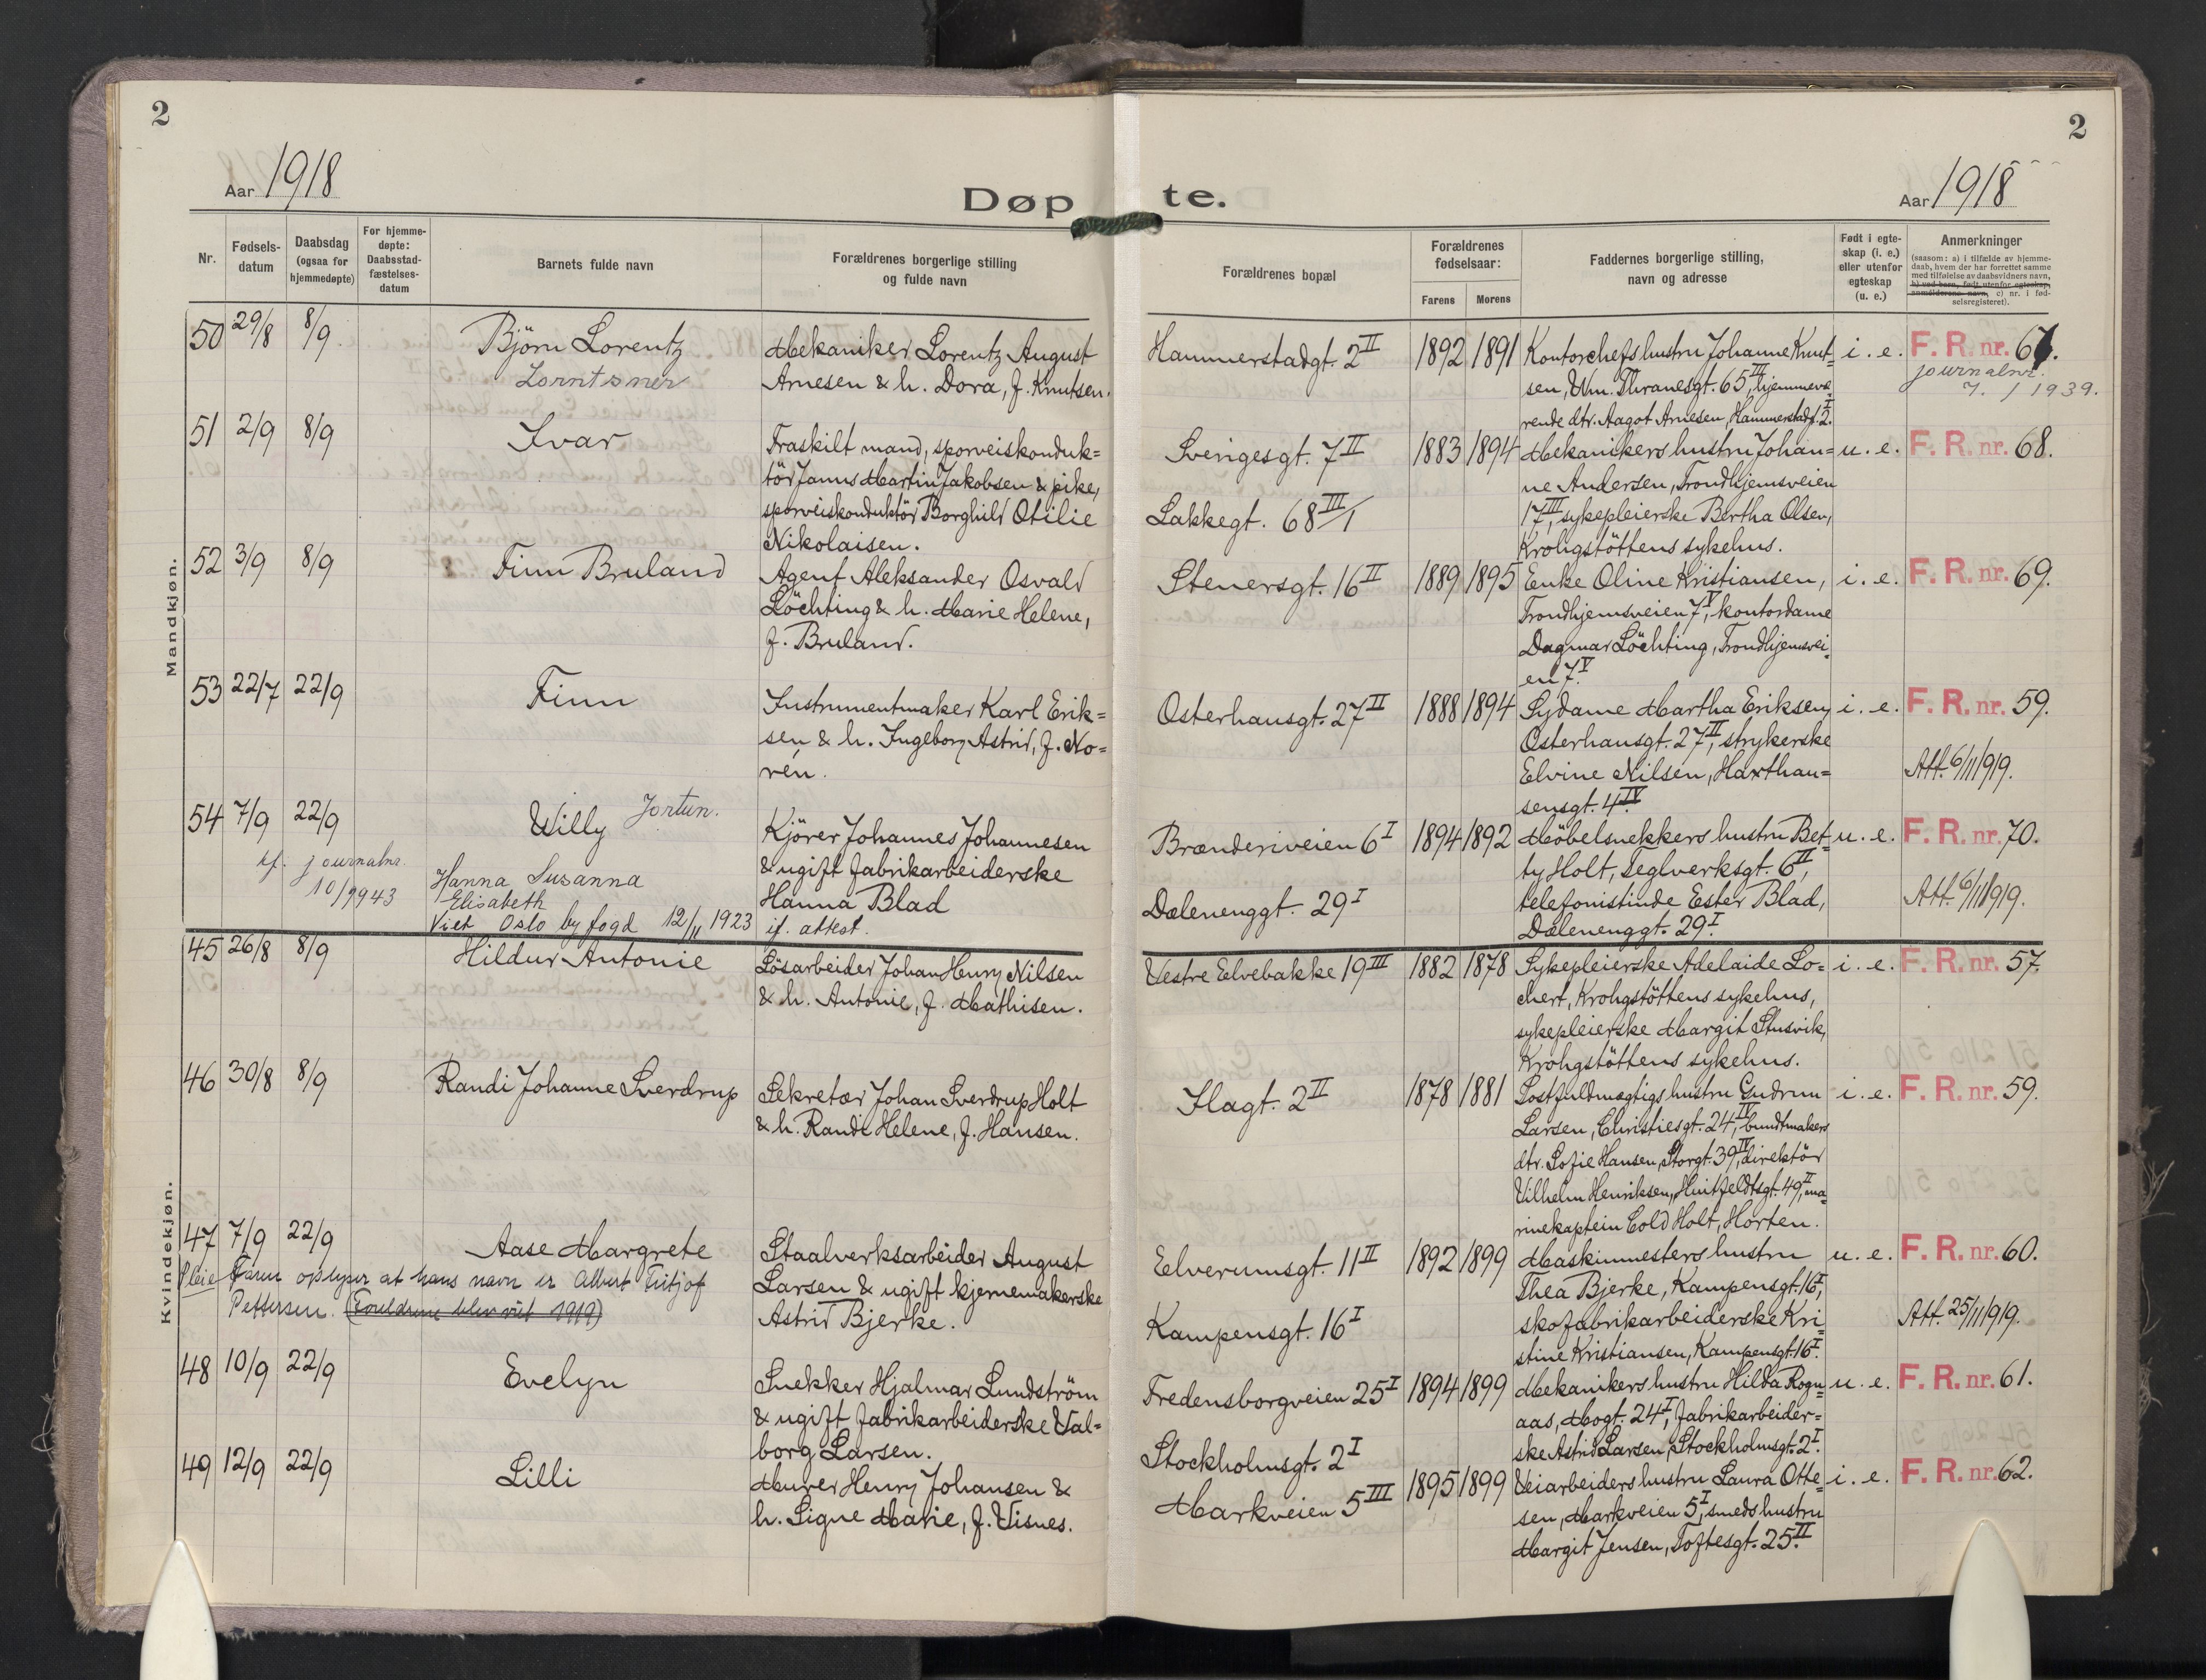 2
2
Aar 1918
Døpte.
Aar 1918
Nr.
Fødsels-
datum
Daabsdag
(ogsaa for
hjemmedøpte)
For hjemme-
døpte:
Daabsstad-
fæstelses-
datum
Barnets fulde navn
Forældrenes borgerlige stilling
og fulde navn
Forældrenes bopæl
Forældrenes
fødselsaar:
Farens
Morens
Faddernes borgerlige stilling,
navn og adresse
Født i egte-
skap (i. e.)
eller utenfor
egteskap
(u. e.)
Anmerkninger
(saasom: a) i tilfælde av hjemme-
daab, hvem der har forrettet samme
med tilføielse av daabsvidners navn,
b) ved barn, født utenfor egteskap,
anmelderens navn, c) nr. i fød-
selsregisteret).
Mandkjøn.
50 29/8 8/9. Björn Lorentz
Lorntsner
Mekaniker Lorentz August
Arnesen & h. Dora, f. Knutsen.
Hammerstadgt. 2 II
1892 1891
Kontorchefs hustru Johanne Knut-
sen, Wm. Thranesgt. 65 III, hjemmevæ-
rende dtr. Aagot Arnesen, Hammerstadgt. 2 I.
i. e.
F. R. nr. 67.
journalnr.
7. / 1939.
51 2/9 8/9 Ivar
Fraskilt mand, sporveiskonduk=
tör Janus Martin Jakobsen & pike,
sporveiskonduktör Borghild Otilie
Nikolaisen.
Sverigesgt. 7 II
Lakkegt. 68 III/1
1883 1894
Mekanikers hustru Johan=
ne Andersen, Trondhjemsveien
17 III, sykepleierske Bertha Olsen,
Krohgstöttens sykehus.
u. e.
F. R. nr. 68.
52 3/9 8/9 Finn Bruland
Agent Aleksander Osvald
Löchting & h. Marie Helene,
f. Bruland.
Stenersgt. 16 II
1889 1895
Enke Oline Kristiansen,
Trondhjemsveien 7 V, kontordame
Dagmar Löchting, Trondhjemsvei-
en 7 V.
i. e.
F. R. nr. 69.
53 22/7 22/9 Finn
Instrumentmaker Karl Erik=
sen & h. Ingeborg Astrid, f. No=
rén.
Osterhausgt. 27 II
1888 1894
Sydame Martha Eriksen,
Osterhausgt. 27 II, strykerske
Elvine Nilsen, Haxthau=
sensgt. 4 IV.
i. e.
F. R. nr. 59.
Att. 6/11 1919.
54 7/9 22/9 Willy Jortun.
if. journalnr.
10/1943
Hanna Susanna
Elisabeth
Viet Oslo byfogd 12/11 1923 if. attest.
Kjörer Johannes Johannesen
& ugift fabrikarbeiderske
Hanna Blad
Brænderiveien 6 I
Dælenenggt. 29 I
1894 1892
Möbelsnekkers hustru Bet-
ty Holt, Teglverksgt. 6 II,
telefonistinde Ester Blad,
Dælenenggt. 29 I.
u. e.
F. R. nr. 70.
Att. 6/11 1919.
Kvindekjøn.
45 26/8 8/9 Hildur Antonie
Lösarbeider Johan Henry Nilsen
& h. Antonie, f. Mathisen.
Vestre Elvebakke 19 III
1882 1878
Sykepleierske Adelaide Lo=
chert, Krohgstöttens sykehus,
sykepleierske Margit Stusvik,
Krohgstöttens sykehus.
i. e.
F. R. nr. 57.
46 30/8 8/9 Randi Johanne Sverdrup
Sekretær Johan Sverdrup Holt
& h. Randi Helene, f. Hansen.
Ilagt. 2 II
1878 1881
Postfuldmægtigs hustru Gudrun
Larsen, Christiesgt. 24 IV, bundtmakers
dtr. Sofie Hansen, Storgt. 39 IV, direktör
Vilhelm Henriksen, Huitfeldtsgt. 49 II, ma-
rinekaptein Cold Holt, Horten.
i. e.
F. R. nr. 59.
47 7/9 22/9 Aase Margrete
Pleie Faren oplyser at hans navn er Albert Fritjof
Pettersen. (Foreldrene blev viet 1919)
Staalverksarbeider August
Larsen & ugift kjernemakerske
Astrid Bjerke.
Elverumsgt. 11 II
Kampensgt. 16 I
1892 1899
Maskinmesters hustru
Thea Bjerke, Kampensgt. 16 I,
skofabrikarbeiderske Kri=
stine Kristiansen, Kampensgt. 16 I.
u. e.
F. R. nr. 60.
Att. 25/11 1919.
48 10/9 22/9 Evelyn
Snekker Hjalmar Lundström
& ugift fabrikarbeiderske Val=
borg Larsen.
Fredensborgveien 25 I
Stockholmsgt. 2 I
1894 1899
Mekanikers hustru Hilda Rogn=
aas, Mogt. 24 I, fabrikarbeider=
ske Astrid Larsen, Stockholmsgt. 2 I.
u. e.
F. R. nr. 61.
49 12/9 22/9 Lilli
Murer Henry Johansen &
h. Signe Marie, f. Visnes.
Markveien 5 III
1895 1899
Veiarbeiders hustru Laura Otte=
sen, Markveien 5 I, smeds hustru
Margit Jensen, Toftesgt. 25 II.
i. e.
F. R. nr. 62.